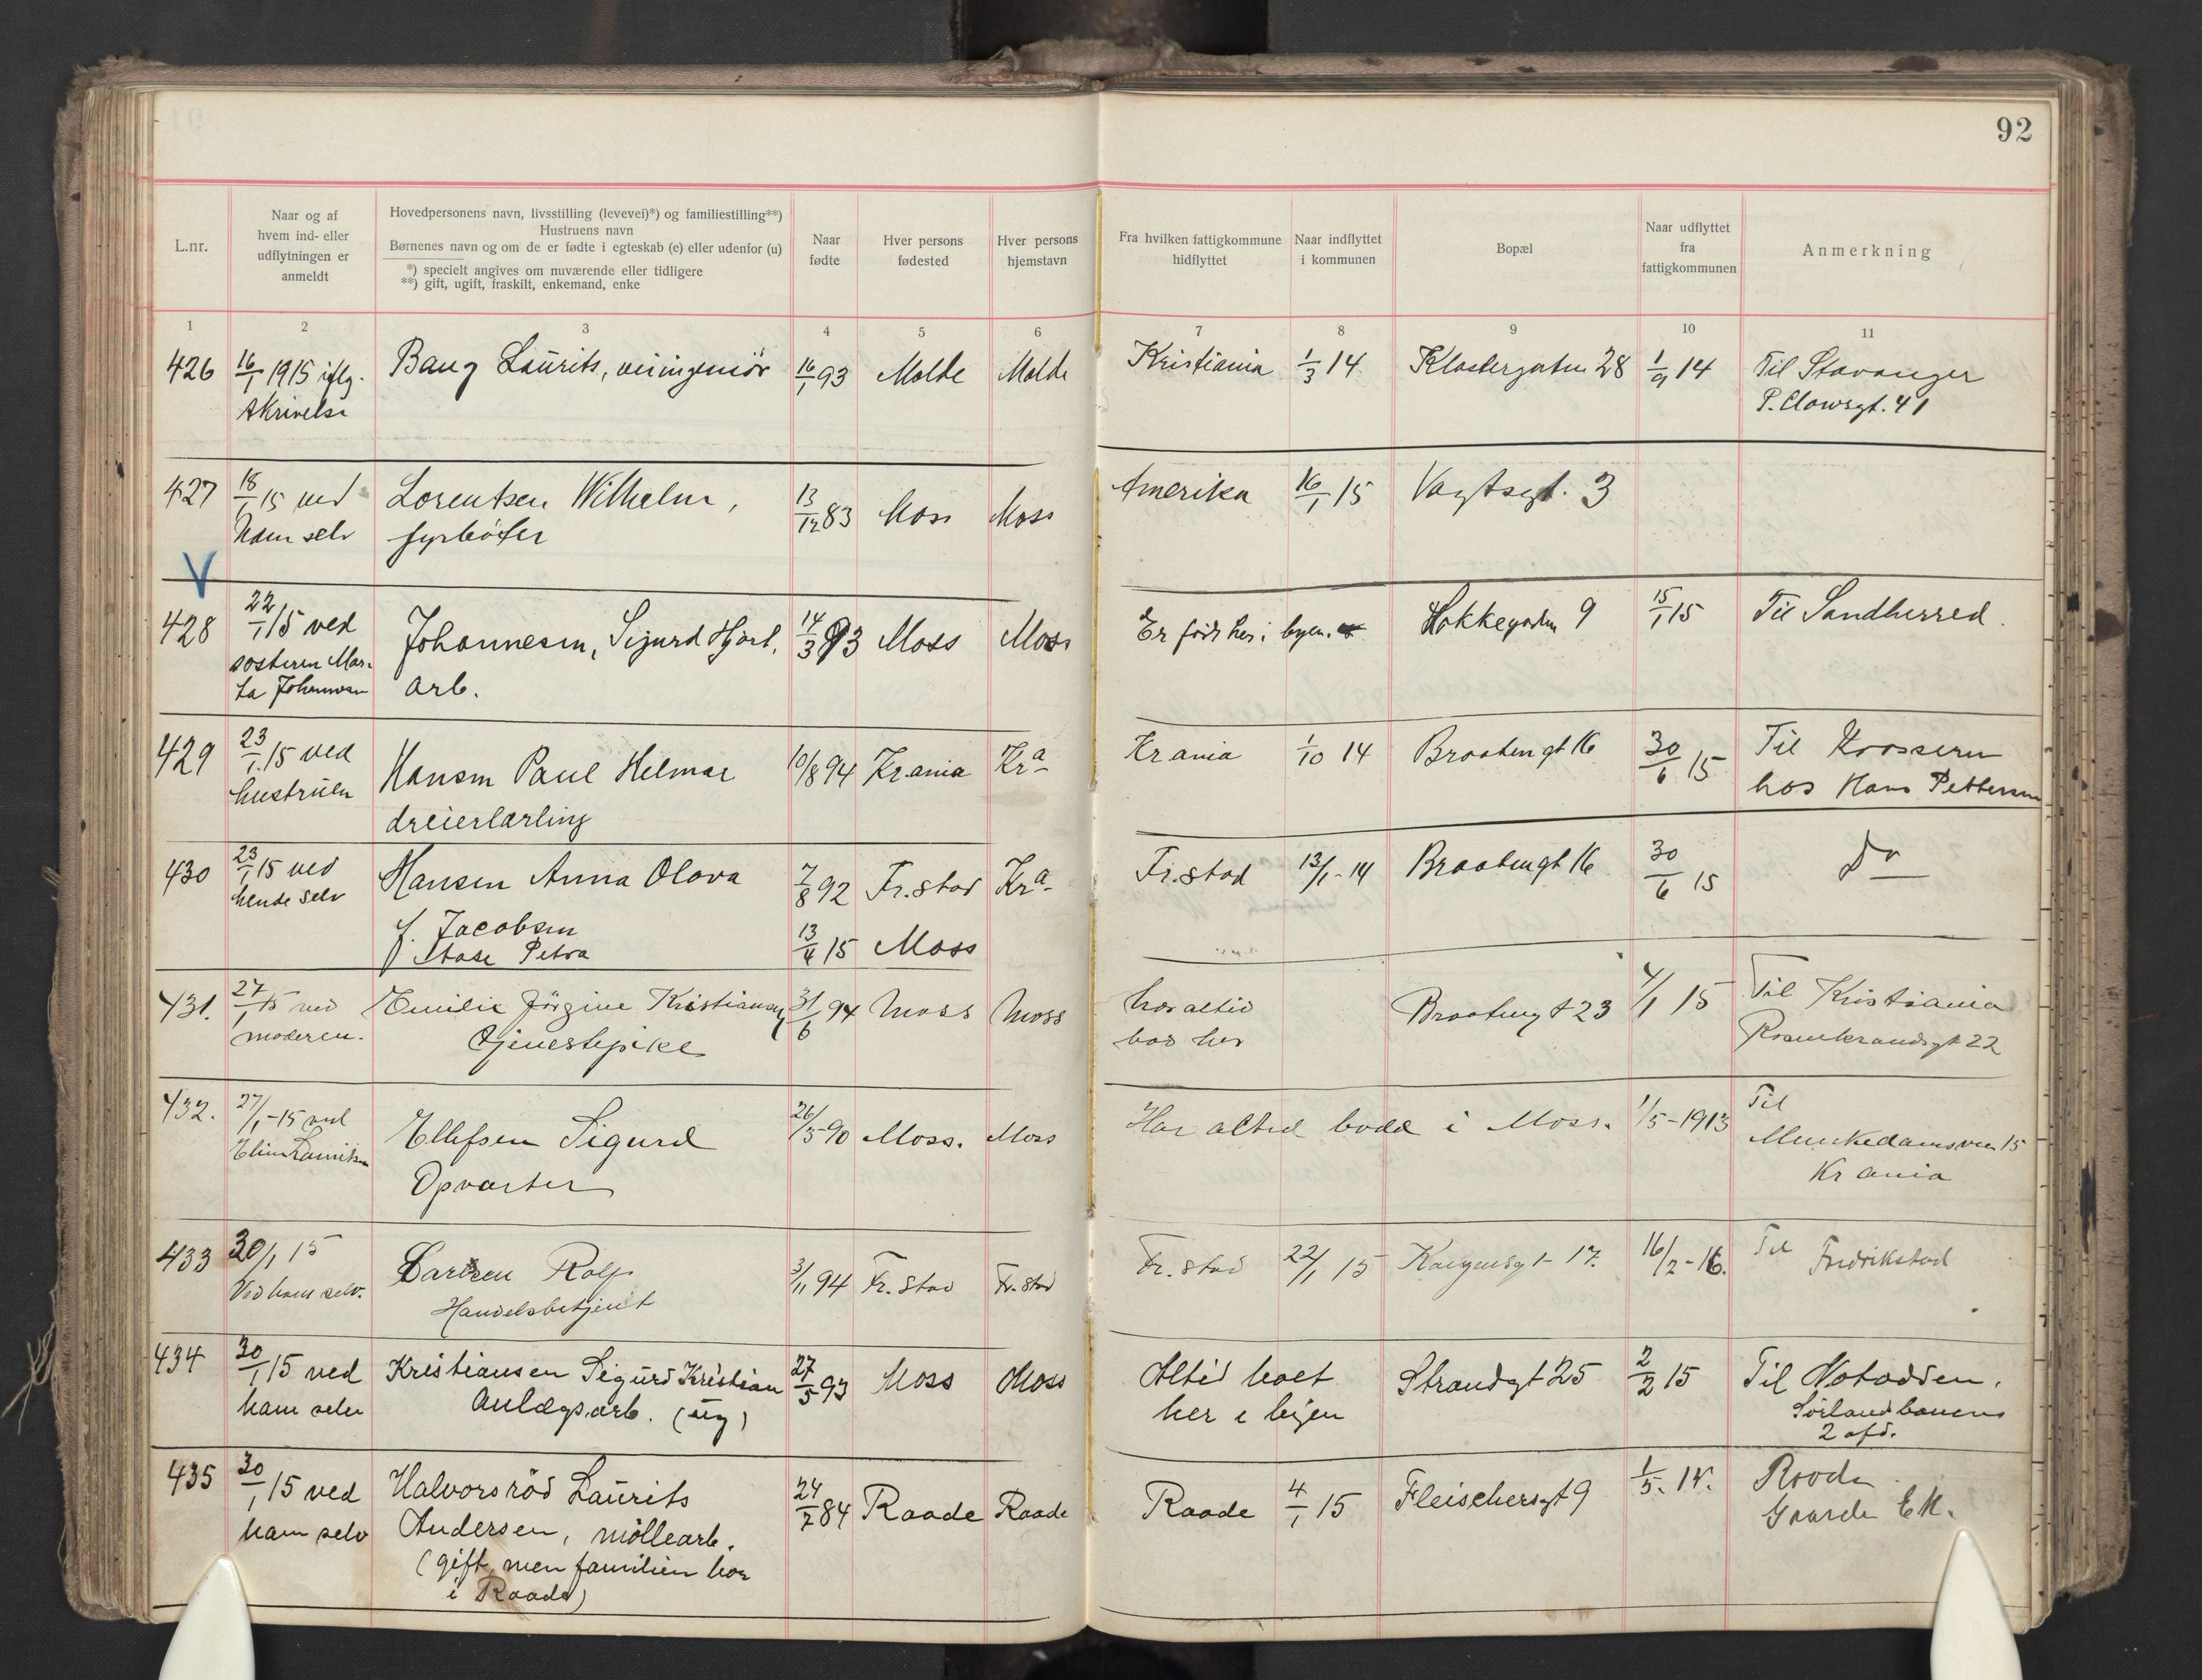 92
L.nr.
Naar og af
hvem ind- eller
udflytningen er
anmeldt
Hovedpersonens navn, livsstilling (levevei)*) og familiestilling**)
Hustruens navn
Børnenes navn og om de er fødte i egteskab (e) eller udenfor (u)
*) specielt angives om nuværende eller tidligere
**) gift, ugift, fraskilt, enkemand, enke
Naar
fødte
Hver persons
fødested
Hver persons
hjemstavn
Fra hvilken fattigkommune
hidflyttet
Naar indflyttet
i kommunen
Bopæl
Naar udflyttet
fra
fattigkommunen
Anmerkning
1 2 3 4 5 6 7 8 9 10 11
426 16/1 1915 iflg. Baug Laurits, 16/1 93 Molde Molde Kristiania 1/3 14 Klostergaten 28 1/9 14 Til Stavanger
skrivelse P. Clowsgt. 41
427 18/1 15 ved Lorentsen Wilhelm, 13/12 83 Moss Moss Amerika 16/1 15 Vogtsgt. 3
ham selv fyrbøter
V
428 22/1 15 ved Johannesen, Sigurd Hjort, 14/3 93 Moss Moss Er født her i byen. Hokkegaden 9 15/1 15 Til Sandherred.
søsteren Mar-
ta Johannesen arb.
429 23/1 15 ved Hansen Paul Helmar 10/8 94 Kr.ania Kra- Kr ania 1/10 14 Braatengt 16 30/6 15 Til Krosseren
hustruen dreierlærling hos Hans Pettersen
430 23/1 15 ved Hansen Anna Olava 7/8 92 Fr.stad Kra- Fr.stad 13/1-14 Braatengt 16 30/6 15 Do
hende selv
f. Jacobsen
Aase Petra 13/4 15 Moss
431. 27/1 15 ved Emilie Jørgine Kristiansen 31/6 94 Moss Moss har altid Braatengt 23 4/1 15 Til Kristiania
moderen. Tjenestepike bod her Rosenkrandsgt 22
432. 27/1-15 ved Ellefsen Sigurd 26/5-90 Moss. Moss Har altid bodd i Moss. 1/5-1913 Til
Elin Opvarter Munkedamsveien 15
Kr ania
433 30/1 15 Carlsen Rolf 3/11 94 Fr. stad Fr. stad Fr. stad 22/1 15 Kongensgt 17. 16/2-16. Til Fredrikstad
Ved ham selv. Handelsbetjent
434 30/1 15 ved Kristiansen Sigurd Kristian 27/5 93 Moss Moss Altid boet Strandgt 25 2/2 15 Til Notodden,
ham selv Anlægsarb. (ug) her i byen Sørlandbanens
2 afd.
435 30/1 15 ved Halvorsrød Laurits 24/7 84 Raade Raade Raade 4/1 15 Fleischersgt 9 1/5. 15. Raade
ham selv Andersen, møllearb.
(gift, men familien bor
i Raade)